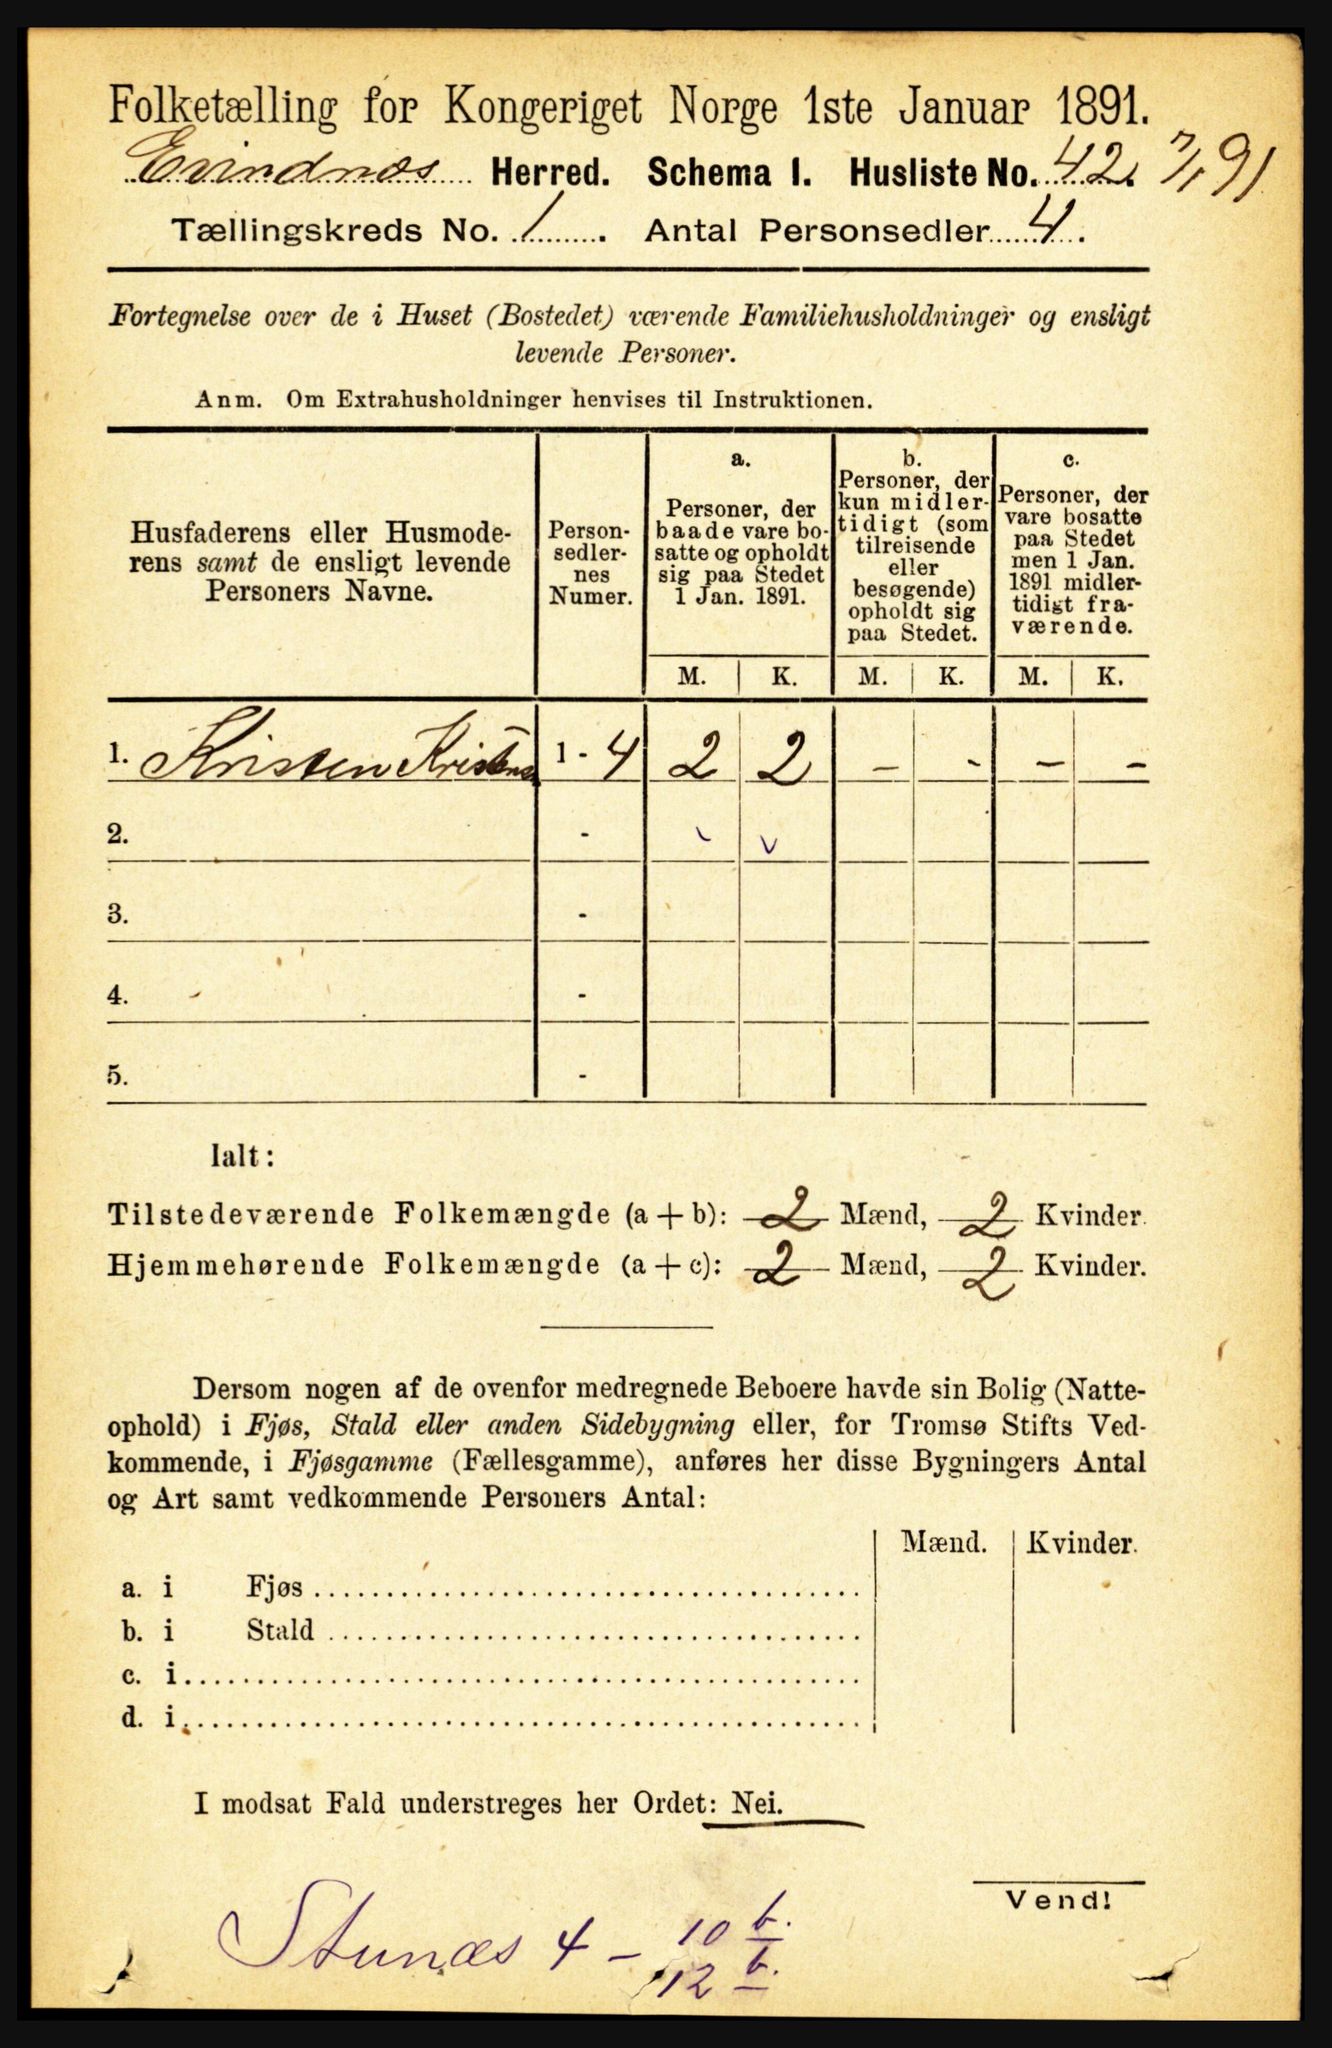 Folketælling for Kongeriget Norge 1ste Januar 1891.
Evindnæs Herred. Schema I. Husliste No. 42. 7/1 91
Tællingskreds No. 1. Antal Personsedler 4.
Fortegnelse over de i Huset (Bostedet) værende Familiehusholdninger og ensligt
levende Personer.
Anm. Om Extrahusholdninger henvises til Instruktionen.
Husfaderens eller Husmode-
rens samt de ensligt levende
Personers Navne.
Person-
sedler-
nes
Numer.
a.
Personer, der
baade vare bo-
satte og opholdt
sig paa Stedet
1 Jan. 1891.
b.
Personer, der
kun midler-
tidigt (som
tilreisende
eller
besøgende)
opholdt sig
paa Stedet.
c.
Personer, der
vare bosatte
paa Stedet
men 1 Jan.
1891 midler-
tidigt fra-
værende.
M. K. M. K. M. K.
1. Kristen Kristens 1 - 4 2 2 - - - -
2. -
3. -
4. -
5. -
Ialt:
Tilstedeværende Folkemængde (a + b): 2 Mænd, 2 Kvinder.
Hjemmehørende Folkemængde (a + c): 2 Mænd, 2 Kvinder.
Dersom nogen af de ovenfor medregnede Beboere havde sin Bolig (Natte-
ophold) i Fjøs, Stald eller anden Sidebygning eller, for Tromsø Stifts Ved-
kommende, i Fjøsgamme (Fællesgamme), anføres her disse Bygningers Antal
og Art samt vedkommende Personers Antal:
Mænd. Kvinder.
a. i Fjøs
b. i Stald
c. i
d. i
I modsat Fald understreges her Ordet: Nei.
Vend!
4 - 10 b.
12 b.